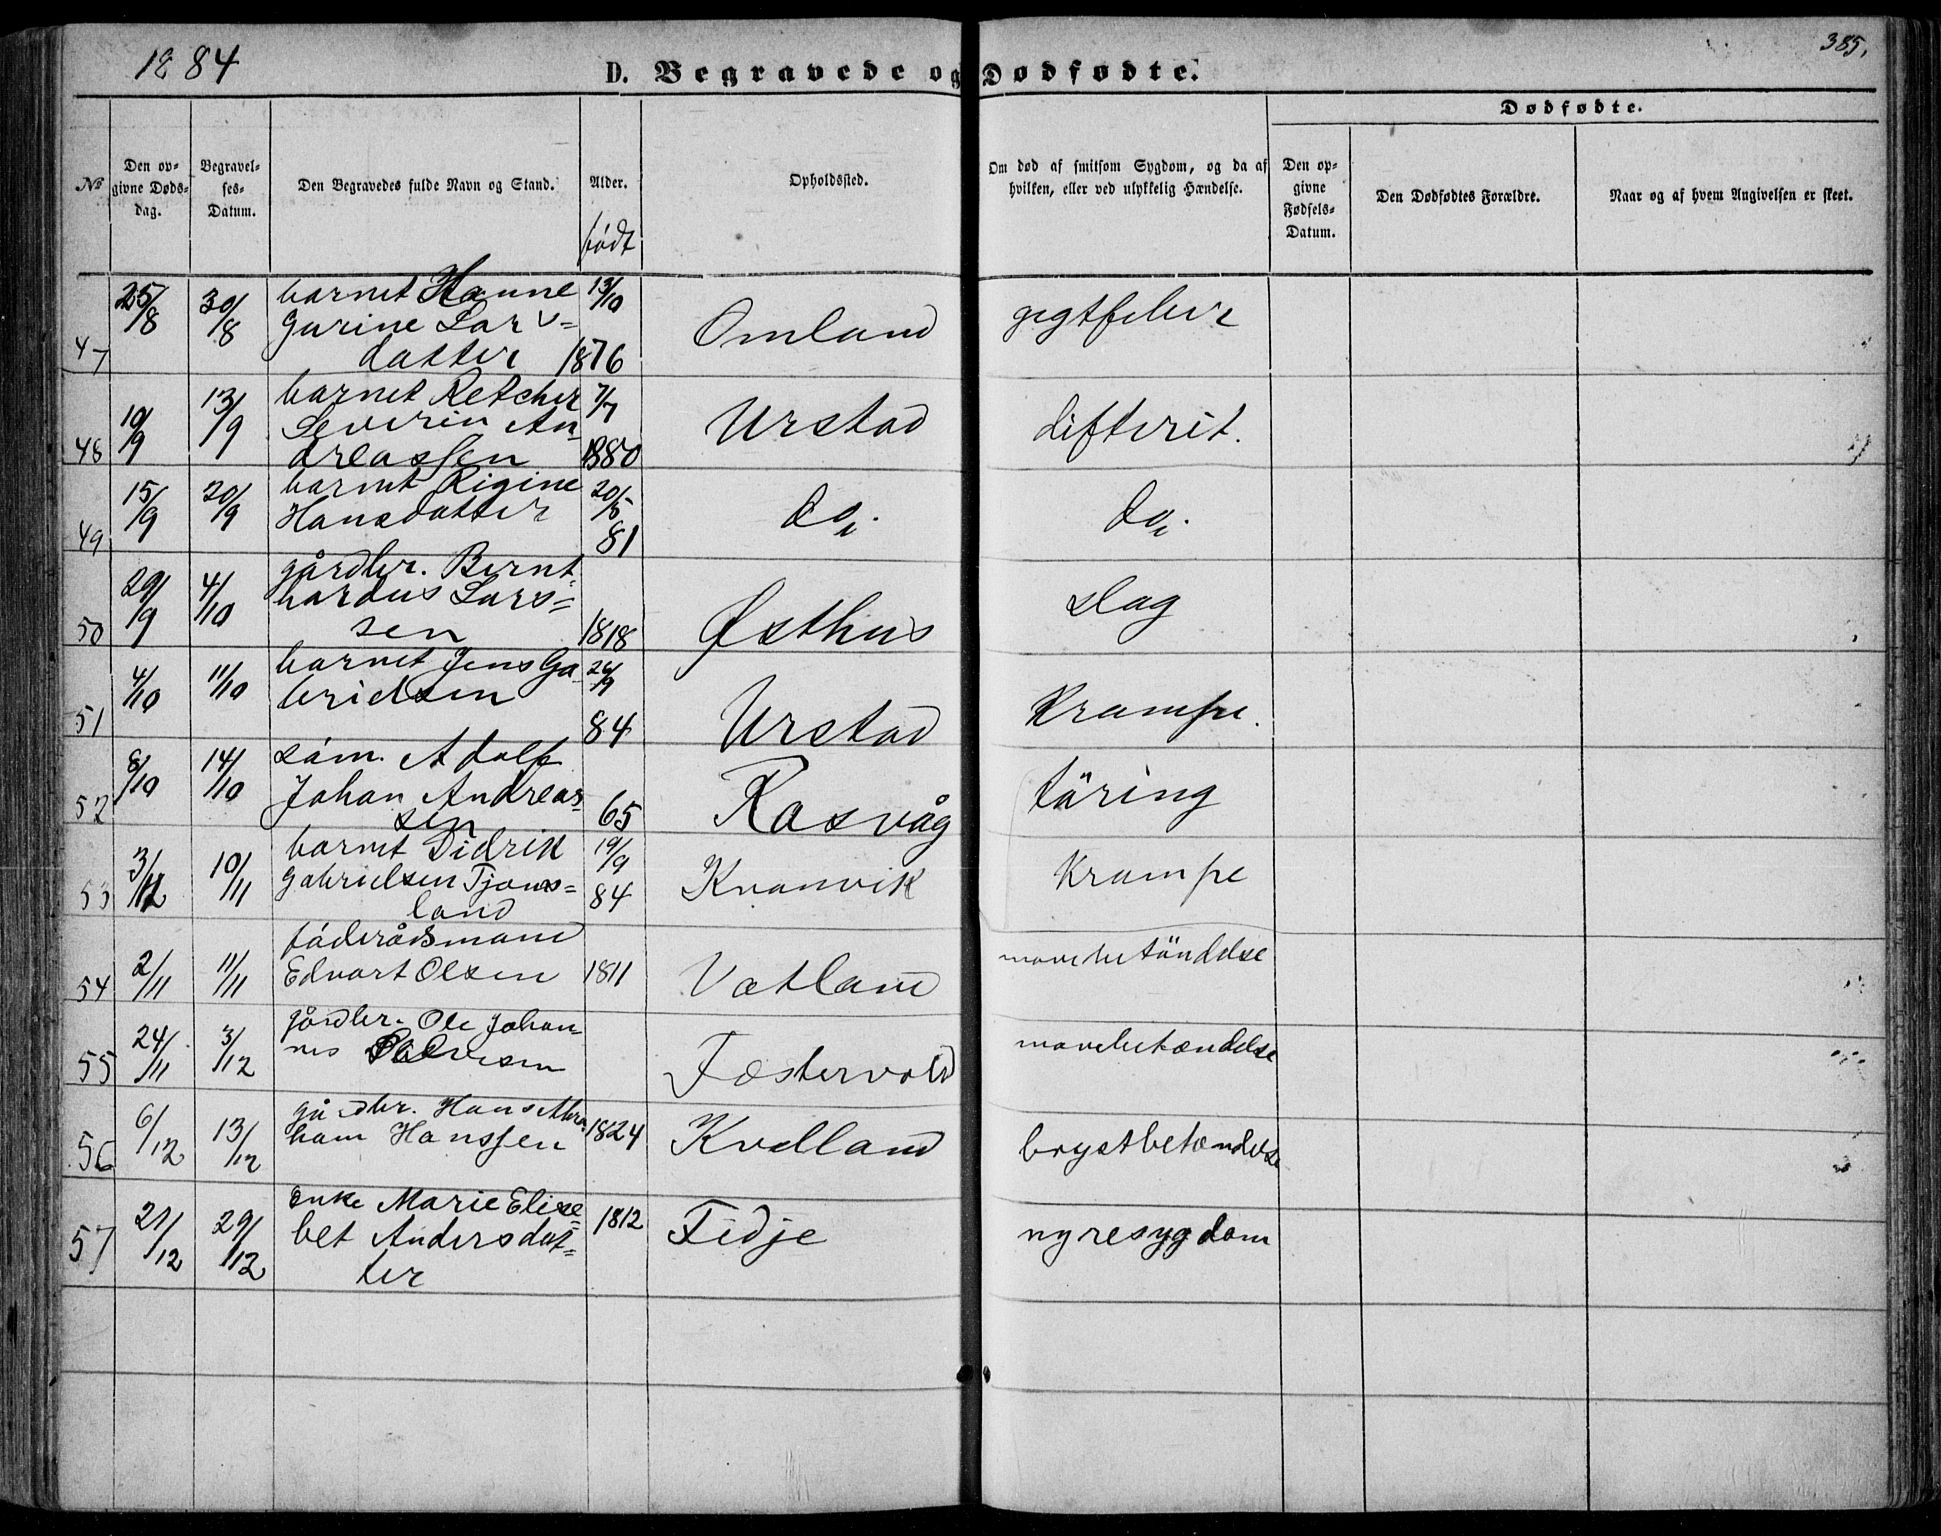 1884
385.
D. Begravede og Dødfødte.
Dødfødte.
No
Den opgivne Dødsdag.
Begravelses-Datum.
Den Begravedes fulde Navn og Stand.
Alder.
født
Opholdssted.
Om død af smitsom Sygdom, og da af hvilken, eller ved ulykkelig Hændelse.
Den opgivne Fødsels-Datum.
Den Dødfødtes Forældre.
Naar og af hvem Angivelsen er skeet.
25/8 30/8 barnet Hanne 13/10
Gurine Lars= Omland gigtfeber
47 datter 1876
barnet Retcher 7/7
10/9 13/9 Severin An- Urstad difterit.
48 dreassen 1880
15/9 20/9 barnet Rigine 20/5
49 Hansdatter 81 do. do.
gårdbr. Bernt
29/9 4/10 hardus Lars= slag
50 sen 1818 Østhus
4/10 11/10 barnet Jens Ga 24/9
brielsen Krampe.
51 84 Urstad
8/10 14/10 søm. Adolf
Johan Andreas- täring
52 sen 65 Rasvåg
barnet Didrik 19/9
3/11 10/11 Gabrielsen Tjoms= Kvanvik Krampe
53 land 84
föderådsmand
2/11 11/11 Edvart Olsen 1811 Vatland mavebetöndelse
54
gårdbr. Ole Johan-
24/11 3/12 nes mavebetændelse
55 Fostervold
6/12 13/12 gårdbr. Hans Abra- 1824
56 ham Hanssen Kvelland brystbetændelse
enke Marie Elise
21/12 29/12 bet Andersdat= 1812 Fidje nyresygdom
57 ter